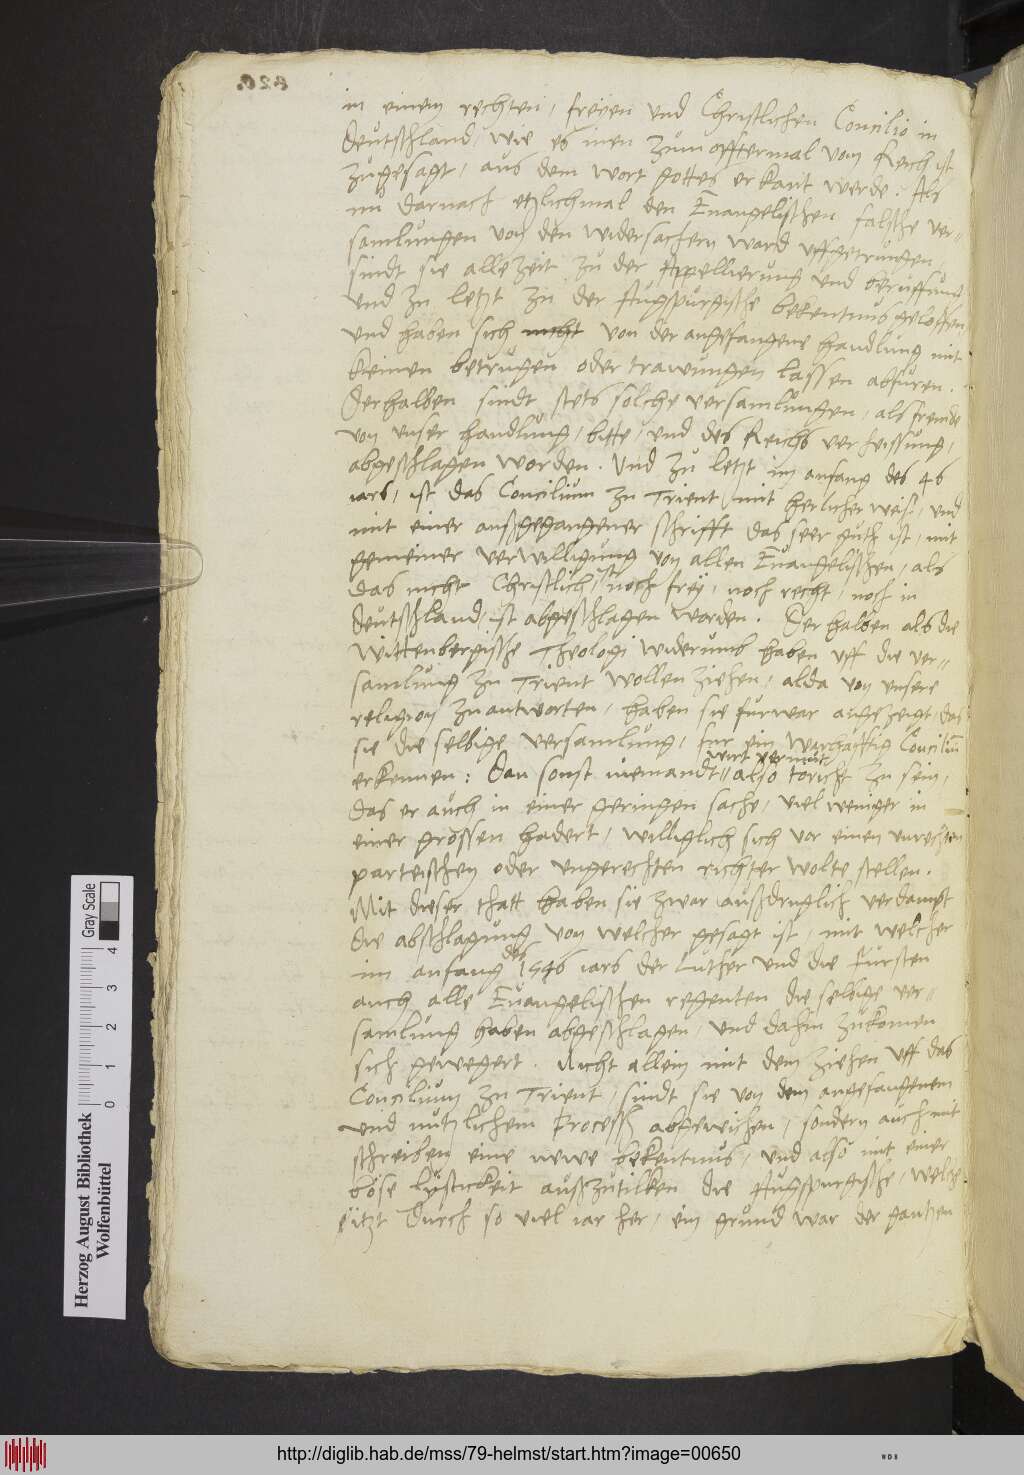 in einem rechten, freien und Christlichen Concilio in
deutschland, wie es inen zum offtermal vom Reich ist
zugesagt, aus dem wort gottes erkant werde: Als
nu darnach etzlichmal den Euangelischen falsche ver-
samlungen von den widersachern ward uffgetrungen,
sindt sie allezeit zu der Appellierung und beruffung
und zu letzt zu der Augspurgische bekentnus geloffen
und haben sich nicht von der angefangene handlung mit
keinen betrugen oder trawungen lassen abfuren.
Derhalben sindt stets solche versamlungen, als fremde
von unser handlung, bitte, und des Reichs verheissung,
abgeschlagen worden. Und zu letzt im anfang des 46
iars, ist das Concilium zu Trient, mit herlicher weis, und
mit einer außgegangener schrifft das seer guth ist, mit
gemeiner verwilligung von allen Euangelischen, als
das nicht Christlich ist noch frey, noch recht, noch in
deutschland, ist abgeschlagen worden. Derhalben als die
Wittenbergische Theologi widerumb haben uff die ver-
samlung zu Trient wollen ziehen, alda von unsere
religion zu antworten, haben sie furwar angezeigt, das
sie die selbige versamlung, fur ein warhafftig Concilium
wirt vermut
erkennen: Dan sonst niemandt also toricht zu sein,
das er auch in einer geringen sache, viel weniger in
einer grossen hadert, williglich sich vor einen unrechten
parteischen oder ungerechten richter wolte stellen.
Mit dieser thatt haben sie zwar außdruglich verdampt
die abschlagung von welcher gesagt ist, mit welcher
im anfang des 1546 iars der Luther und die fursten
auch alle Euangelischen regenten die selbige ver-
samlung haben abgeschlagen, und dahin zukomen
sich gewegert. Nicht allein mit dem ziehen uff das
Concilium zu Trient, sindt sie von dem angefangenem
und nutzlichem Process abgewichen, sondern auch mit
schreiben eine newe bekentnus, und also mit einer
böse lystickeit außzutilken die Augspurgische, welche
eitzt durch so viel iar her, ein grund war der gantzen
Herzog August Bibliothek
Wolfenbüttel
0 1 2 3 4
Gray Scale
http://diglib.hab.de/mss/79-helmst/start.htm?image=00650